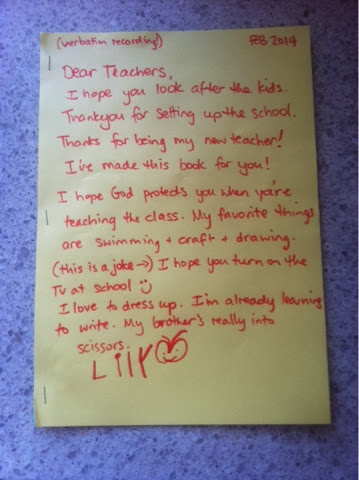 (verbatim recording!) FEB 2014
Dear Teachers,
I hope you look after the kids.
Thankyou for setting up the school.
Thanks for being my new teacher!
I've made this book for you!
I hope God protects you when you're
teaching the class. My favorite things
are swimming + craft + drawing.
(this is a joke →) I hope you turn on the
TV at school
I love to dress up. I'm already learning
to write. My brother's really into
scissors.
LilY